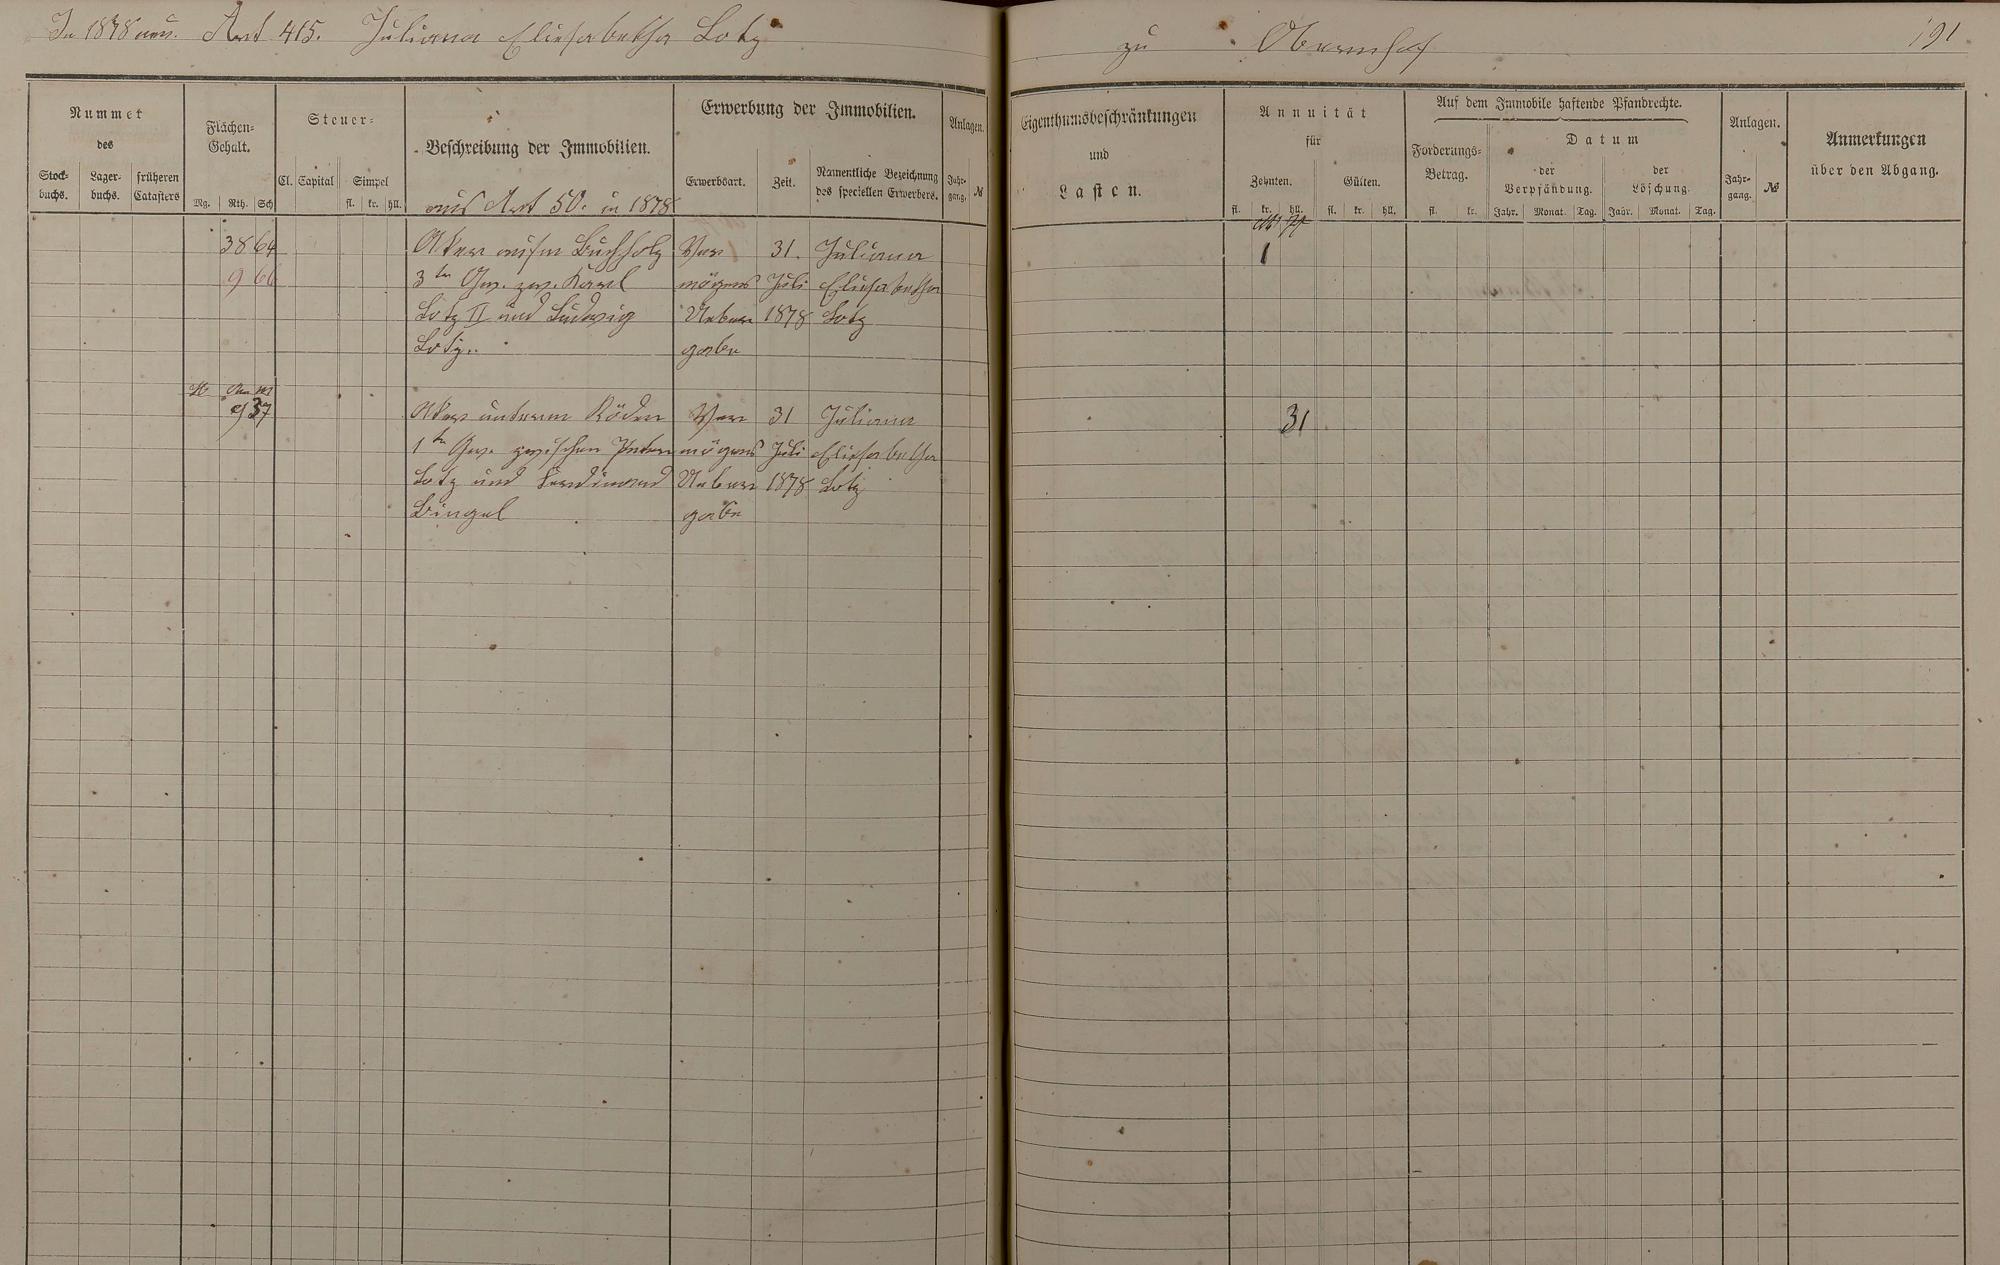 In 1878 neu. Art 415. Juliana Eliesabetha Lotz
zu Obernhof 191
Nummer des
Stock-buchs. Lager-buchs. früheren Catasters
Flächen-Gehalt.
Mg. Rth. Sch
Steuer-
Cl. Capital Simpel
fl. kr. hll.
Beschreibung der Immobilien.
aus Art 50. in 1878
Erwerbung der Immobilien.
Erwerbsart. Zeit. Namentliche Bezeichnung des speciellen Erwerbers.
Anlagen.
Jahr-gang. №
Eigenthumsbeschränkungen
und
Lasten.
Annuität
für
Zehnten. Gülten.
fl. kr. hll. fl. kr. hll.
Auf dem Immobile haftende Pfandrechte.
Forderungs-Betrag.
fl. kr.
Datum
der Verpfändung. der Löschung.
Jahr. Monat. Tag. Jahr. Monat. Tag.
Anlagen.
Jahr-gang. №
Anmerkungen
über den Abgang.
38 64 Aker aufm Buchholz Ver 31. Juliana 1
9 66 3ten Gew. zw. Karl mögens Juli Eliesabetha
Lotz II und Ludwig Ueber 1878 Lotz
Lotz. gabe
9 37 Aker unterm Röden Ver 31 Juliana 31
1te Gew. zwischen Peter mögens Juli Eliesabetha
Lotz und Ferdinand Ueber 1878 Lotz
Bingel gabe